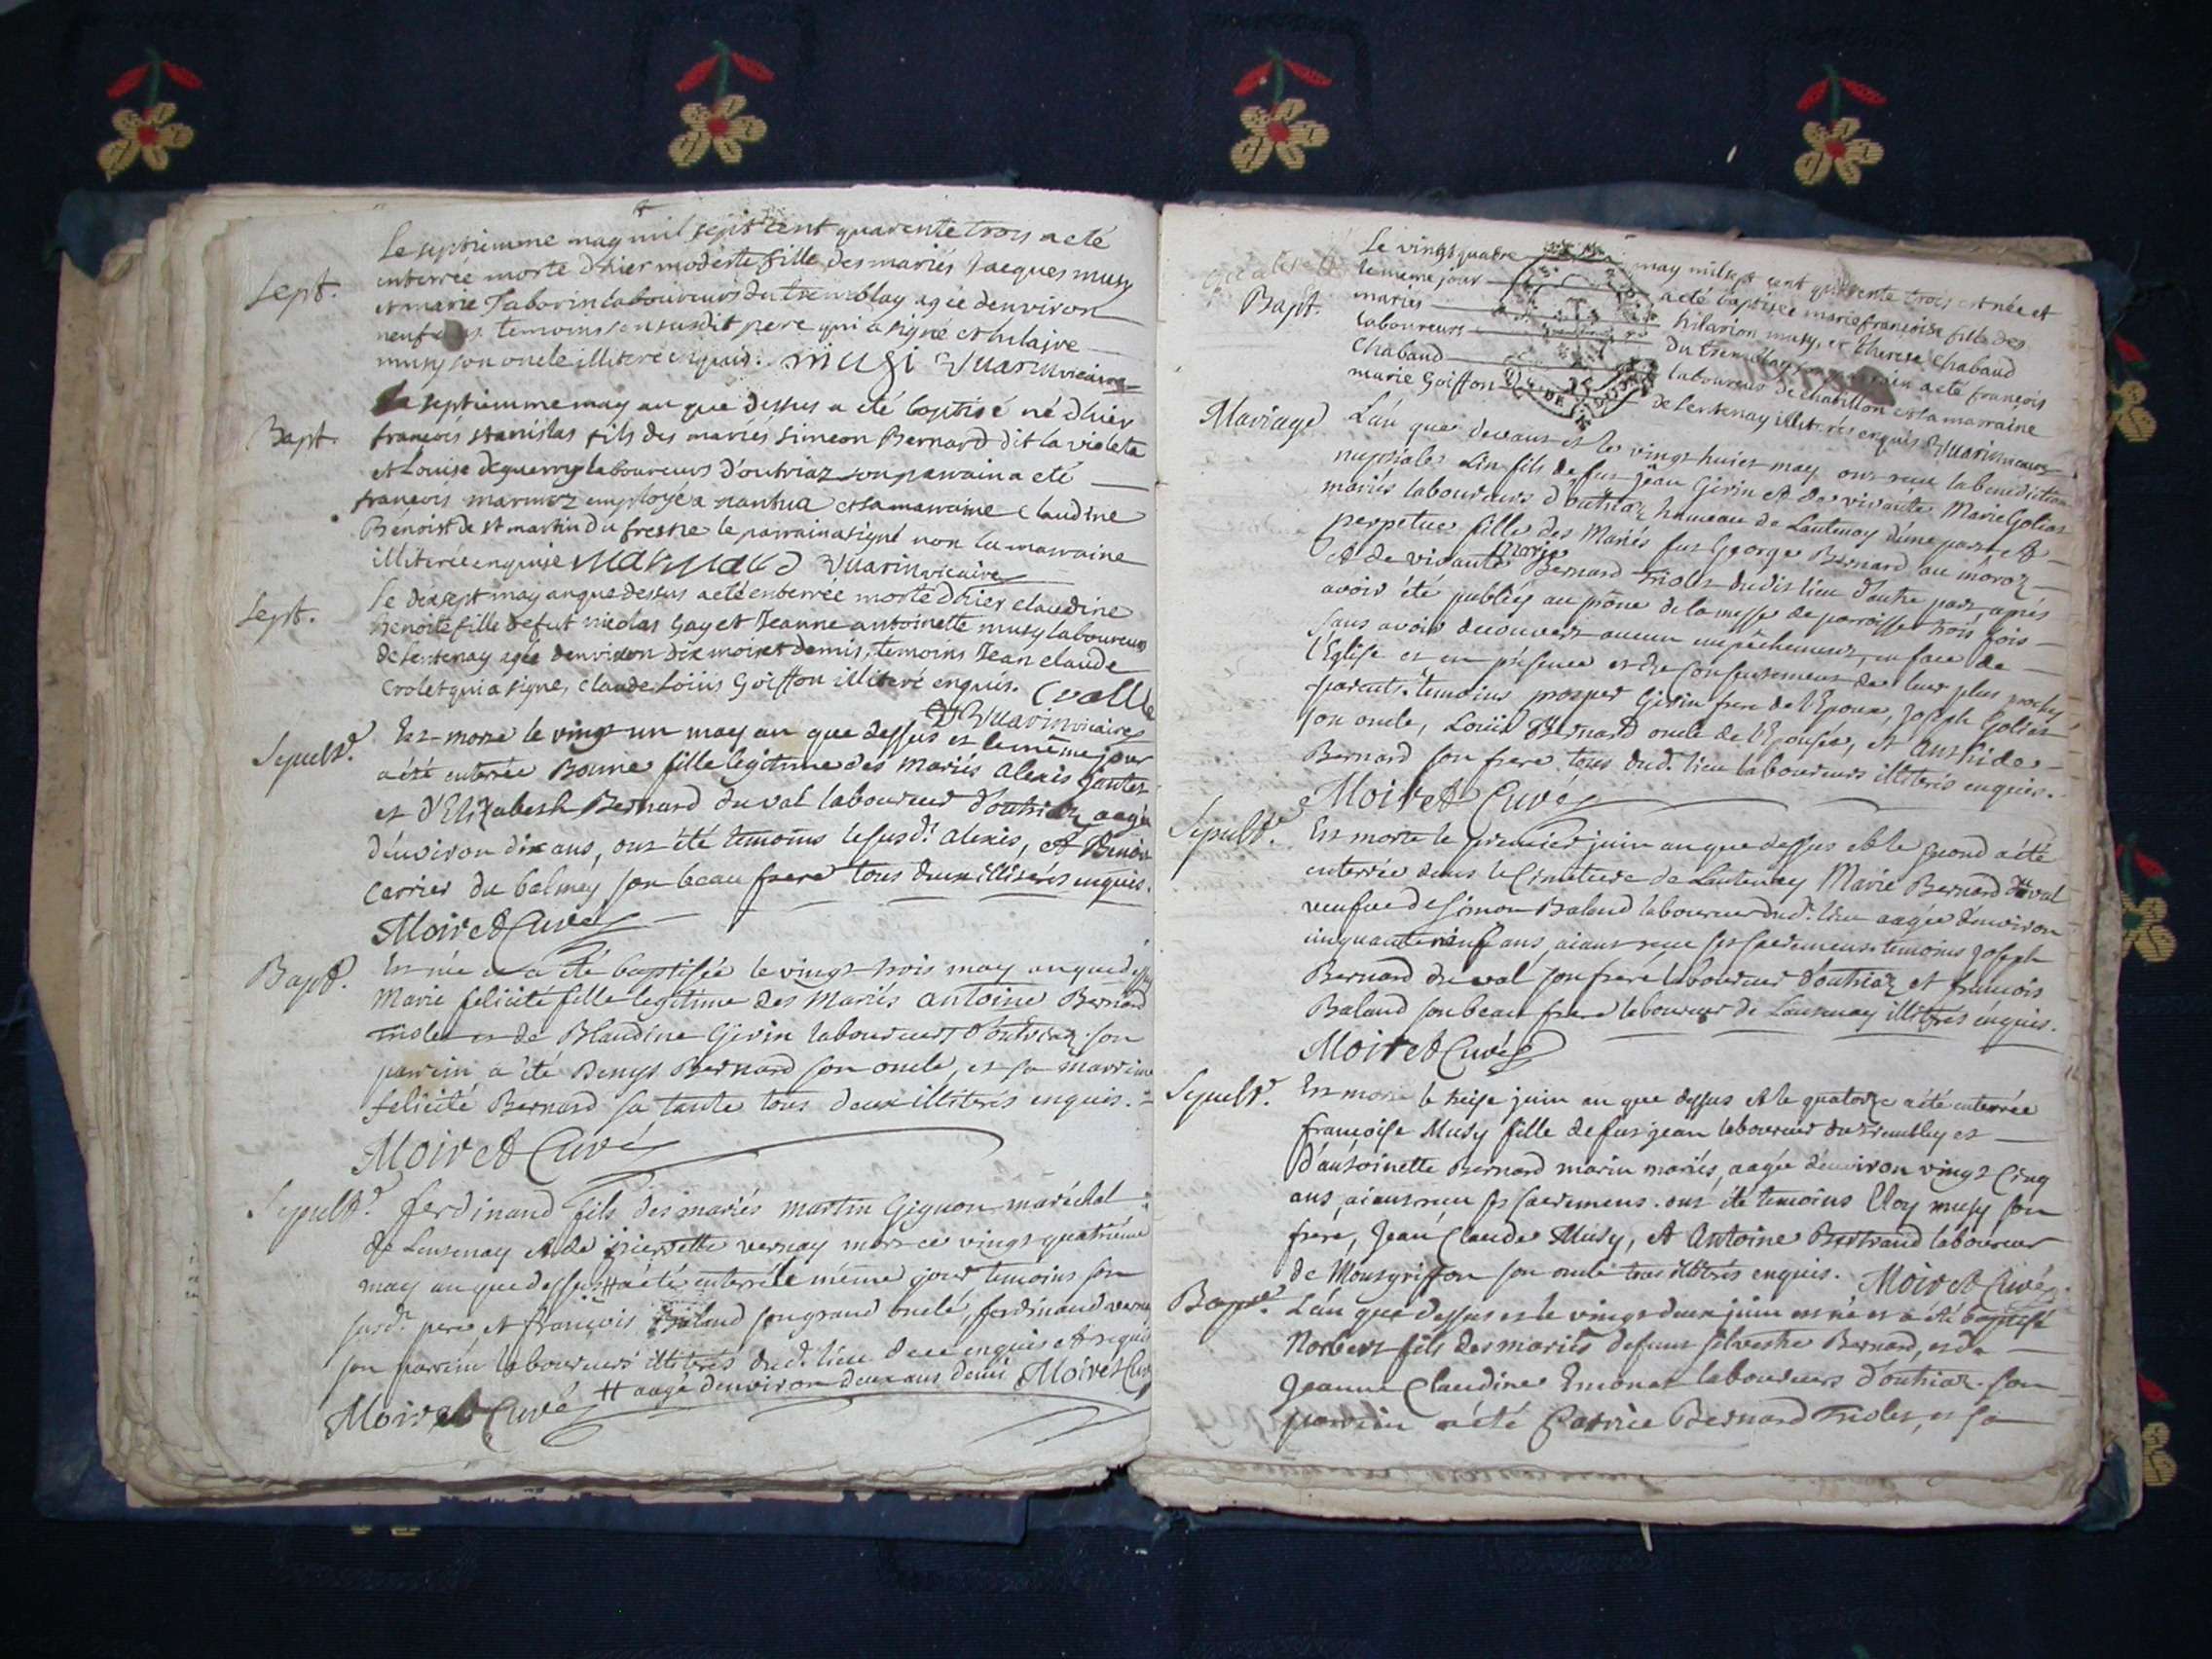 Le septiemme may mil sept cent quarente trois a eté
Sept. enterrée morte d'hier modeste fille des mariés Jacques musy
et marie Taborin laboureurs du tremblay agée d'environ
neuf temoins son susdit pere qui a signé et hilaire
musy son oncle illiteré enquis. musi Vuarin vicaire
Le septiemme may an que dessus a eté baptisé né d'hier
Bapt. francois stanislas fils des mariés simeon Bernard dit la violete
et Louise deguerry laboureurs d'outriaz son parrain a eté
francois marmoz employé a nantua et sa marraine claudine
Benoist de st martin du fresne le parrain a signé non la marraine
illiterée enquise marmoud Vuarin vicaire
Sept. Le dixsept may an que dessus a eté enterrée morte d'hier claudine
benoite fille de fut nicolas Gay et Jeanne antoinette musy laboureurs
de Lentenay agée d'environ dix mois et demis, temoins Jean claude
crolet qui a signé, claude Loüis Goiffon illiteré enquis. Crollet
Vuarin vicaire
Sepult. Est morte le vingt un may an que dessus et le même jour
a été enterrée Bonne fille legitime des mariés alexis
et d'Elizabeth Bernard duval laboureur d'outriaz aagée
d'environ dix ans, ont été temoins le susd. alexis, et Benoit
carrier du balmey son beau frere tous deux illiterés enquis.
Moiret Curé
Bapt. Est née et a été baptisée le vingt trois may an que dessus
Marie felicité fille legitime des mariés antoine Bernard
Triolet et de Blandine Girin laboureurs d'outriaz. son
parrein a été Denys Bernard son oncle, et sa marreine
felicité Bernard sa tante tous deux illiterés enquis.
Moiret Curé
Sepult. ferdinand fils des mariés martin Gignon maréchal
de Lentenay et de pierrette vernay mort ce vingt quatriéme
may an que dessus # a été enterré le même jour temoins son
susd. pere et francois Baland son grand oncle, ferdinand verney
son parrein laboureurs illiterés dud. lieu de ce enquis et requis
# aagé d'environ deux ans demi Moiret Curé
Moiret Curé
Le vingt quatre may mil sept cent quarente trois est née et
Bapt. le meme jour a eté baptisée marie francoise fille des
mariés hilarion musy, et Therese Chabaud
laboureurs du tremblay son parrain a eté francois
Chabaud laboureur de chatillon et sa marraine
marie Goiffon de Lentenay illiterés enquis Vuarin vicaire
Mariage L'an que devant et le vingt huict may ont receu la benediction
nuptiale Lin fils de fut jean Girin et de vivante Marie Goliat
mariés laboureurs d'outriaz hameau de Lantenay d'une part et
perpetue fille des Mariés fut George Bernard au môroz
et de vivante marie Bernard Triolet dudit lieu d'autre part, aprés
avoir été publiés au prône de la messe de parroisse trois fois
sans avoir decouvert aucun empêchement, en face de
l'Eglise et en présence et de consentement de leur plus proches
parents. temoins prosper Girin frere de l'Epoux, joseph Goliat
son oncle, Louïs Bernard oncle de l'Epouse, et
Bernard son frere tous dud. lieu laboureurs illiterés enquis.
Moiret Curé
Sepult. Est morte le premier juin an que dessus et le second a été
enterrée dans le cimetiere de Lantenay Marie Bernard duval
veufve de Simon Baland laboureur dud. lieu aagée d'environ
cinquante neuf ans, aiant receu ses sacremens. temoins joseph
Bernard duval son frere laboureur d'outriaz et francois
Baland son beau frere laboureur de Lantenay illiterés enquis.
Moiret Curé
Sepult. Est morte le treise juin an que dessus et le quatorze a été enterrée
francoise Musy fille de fut jean laboureur du trembley et
d'antoinette Bernard marin mariés, aagée d'environ vingt cinq
ans, aiant receu ses sacremens. ont été temoins Eloy musy son
frere, Jean Claude Musy, et Antoine Bertrand laboureur
de Montgriffon son oncle tous illiterés enquis. Moiret Curé
Bapt. L'an que dessus et le vingt deux juin est né et a été baptisé
Norbert fils des mariés defunt silvestre Bernard, et de
Jeanne Claudine Emonet laboureurs d'outriaz. son
parrein a été Patrice Bernard Triolet, et sa